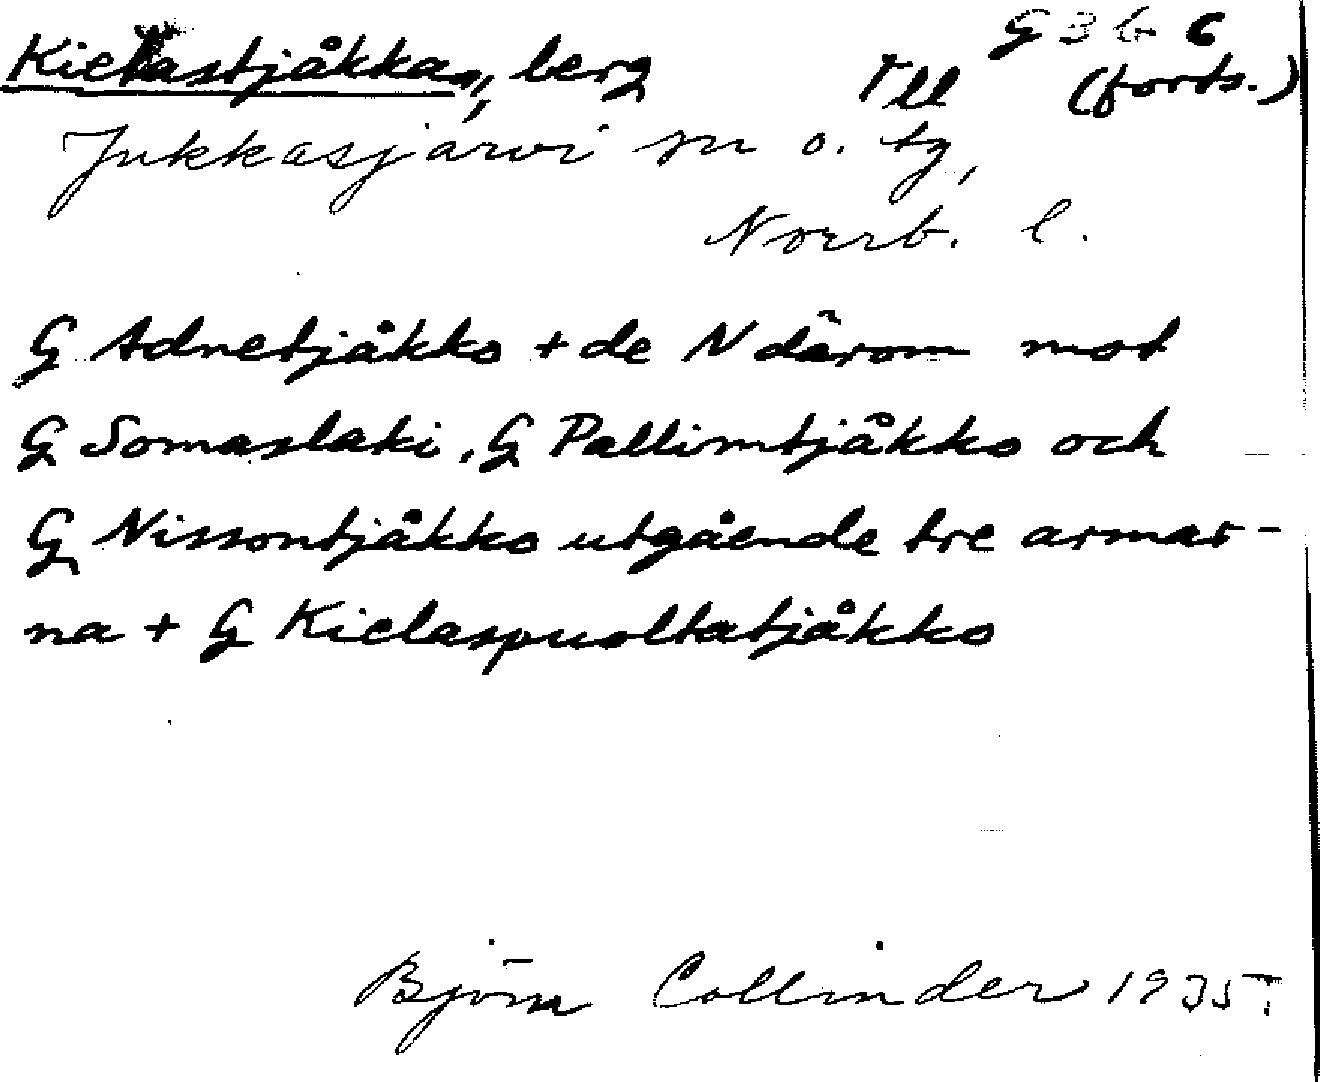 Kielastjåkka, berg Till G 36 c
(forts.)
Jukkasjärvi sn o. tg,
Norrb. l.
G Adnetjåkko + de N därom mot
G Somaslaki, G Pallimtjåkko och
G Nissontjåkko utgående tre armar-
na + G Kielaspuoltatjåkko
Björn Collinder 1935